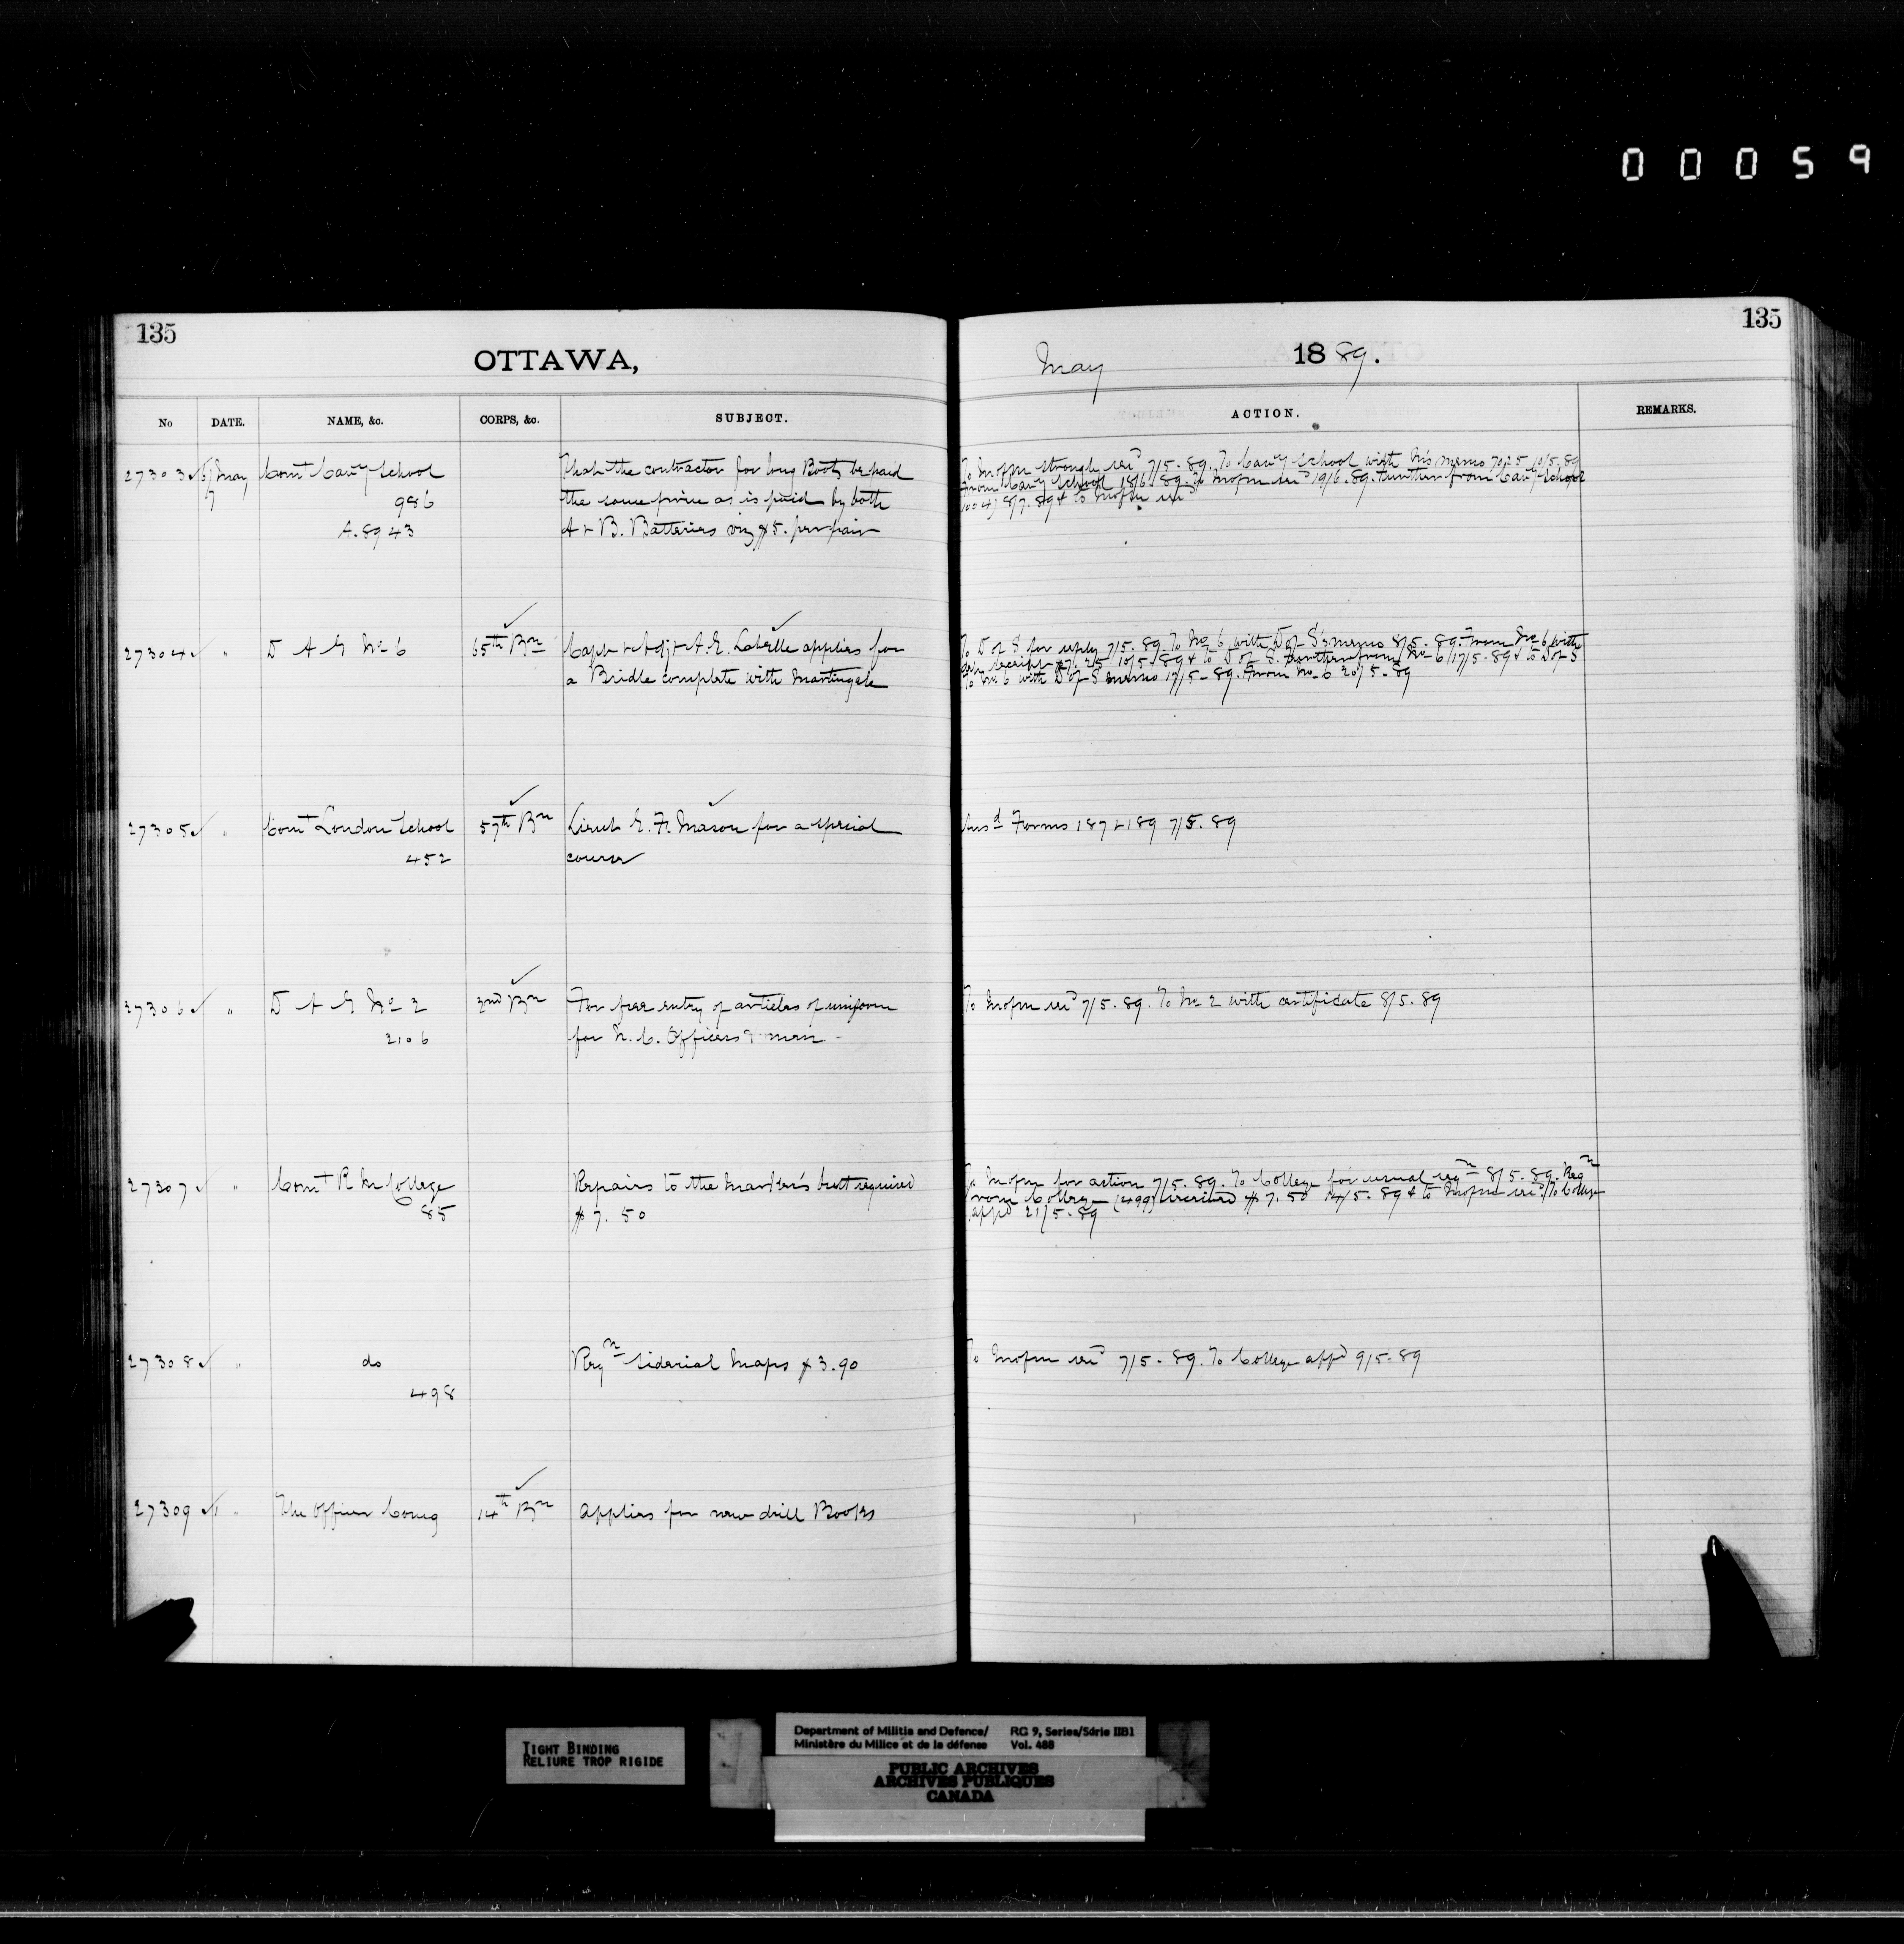 00059
135
OTTAWA,
No DATE. NAME, &c. CORPS, &c. SUBJECT.
27303 May 7 Comt Cavy School
986
A.8943
That the contractor for long Boots be paid
the same price as is paid by both
A & B. Batteries viz $5. per pair
27304 " D A G No 6 65th Bn Capt & Adjt A.E. Labelle applies for
a Bridle complete with Martingale
27305 " Comt London School 57th Bn Lieut E. F. Mason for a special
452 course
27306 " D A G No 2 2nd Bn For free entry of articles of uniform
2106 for N.C. Officers & men
27307 " Comt R M College Repairs to the boat required
85 $7.50
27308 " do Reqn Siderial Maps $3.90
498
27309 " The Officer Comg 14th Bn applies for new drill Books
135
May 1889.
ACTION. REMARKS.
To strongly 7/5.89. To Cavy School with memo 10/5.89
From Cavy School 18/6.89. To 19/6.89. Further from Cavy School
8/7.89 & to
To D of S for reply 7/5.89. To No 6 with D of S's memo 8/5.89. From No 6 with
receipt 10/5.89 & to D of S. Further from No 6 17/5.89 & to D of S
To No 6 with D of S memo 17/5.89. From No 6 20/5.89
Ansd Forms 187 & 189 7/5.89
To 7/5.89. To No 2 with certificate 8/5.89
To for action 7/5.89. To College for usual reqn 8/5.89. Reqn
from College (499) received $7.50 14/5.89 & to To College
appd 21/5.89
To 7/5.89. To College appd 9/5.89
TIGHT BINDING
RELIURE TROP RIGIDE
Department of Militia and Defence/ RG 9, Series/Série IIB1
Ministère du Milice et de la défense Vol. 488
PUBLIC ARCHIVES
ARCHIVES PUBLIQUES
CANADA